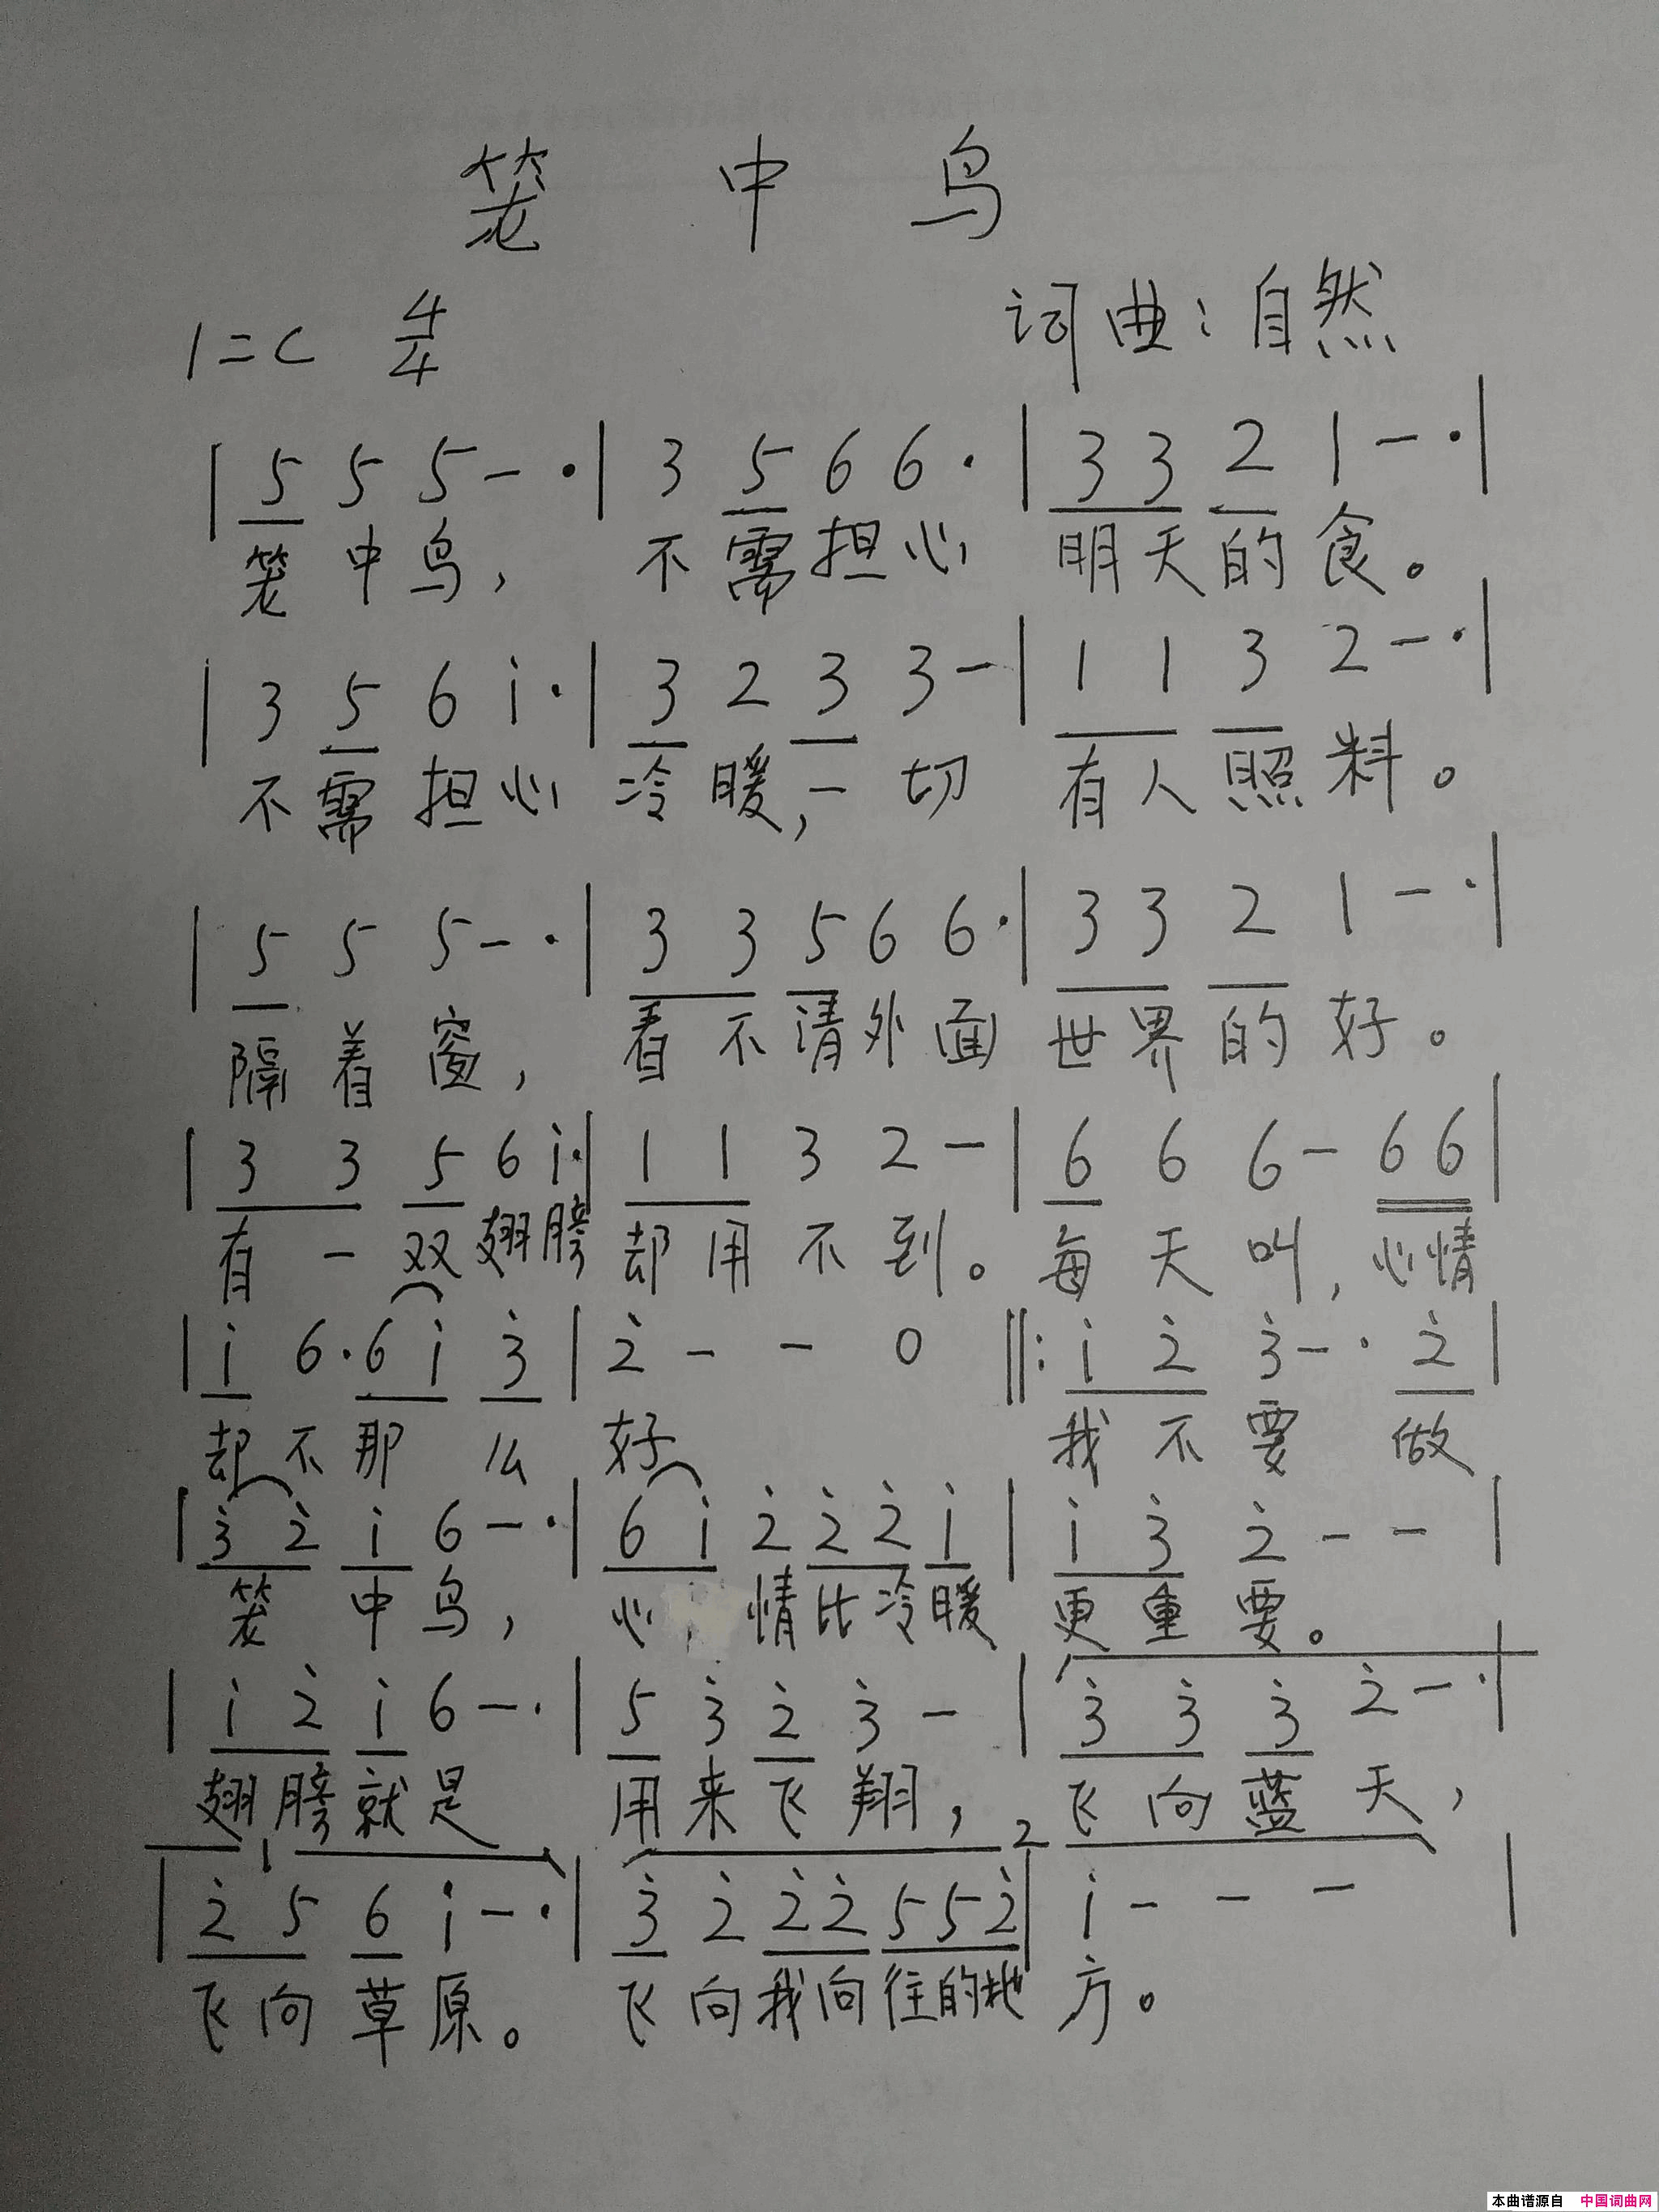 笼 中 鸟
1=C 4/4 词曲：自然
| 5 5 5 - · | 3 5 6 6 · | 3 3 2 1 - · |
笼 中 鸟， 不 需 担 心 明 天 的 食。
| 3 5 6 i · | 3 2 3 3 - | 1 1 3 2 - · |
不 需 担 心 冷 暖，一 切 有 人 照 料。
| 5 5 5 - · | 3 3 5 6 6 · | 3 3 2 1 - · |
隔 着 窗， 看 不 清 外 面 世 界 的 好。
| 3 3 5 6 i · | 1 1 3 2 - | 6 6 6 - 6 6 |
有 一 双 翅 膀 却 用 不 到。 每 天 叫，心 情
| i 6 · 6 i 3̇ | 2̇ - - 0 ‖: i 2̇ 3̇ - · 2̇ |
却 不 那 么 好 我 不 要 做
| 3̇ 2̇ i 6 - · | 6 i 2̇ 2̇ 2̇ i | i 3̇ 2̇ - - |
笼 中 鸟， 心 情 比 冷 暖 更 重 要。
| i 2̇ i 6 - · | 5 3̇ 2̇ 3̇ - | 3̇ 3̇ 3̇ 2̇ - · |
翅 膀 就 是 用 来 飞 翔， 飞 向 蓝 天，
1 2
| 2̇ 5 6 i - · | 3̇ 2̇ 2̇ 2̇ 5 5 2̇ | i - - - |
飞 向 草 原。 飞 向 我 向 往 的 地 方。
本曲谱源自 中国词曲网